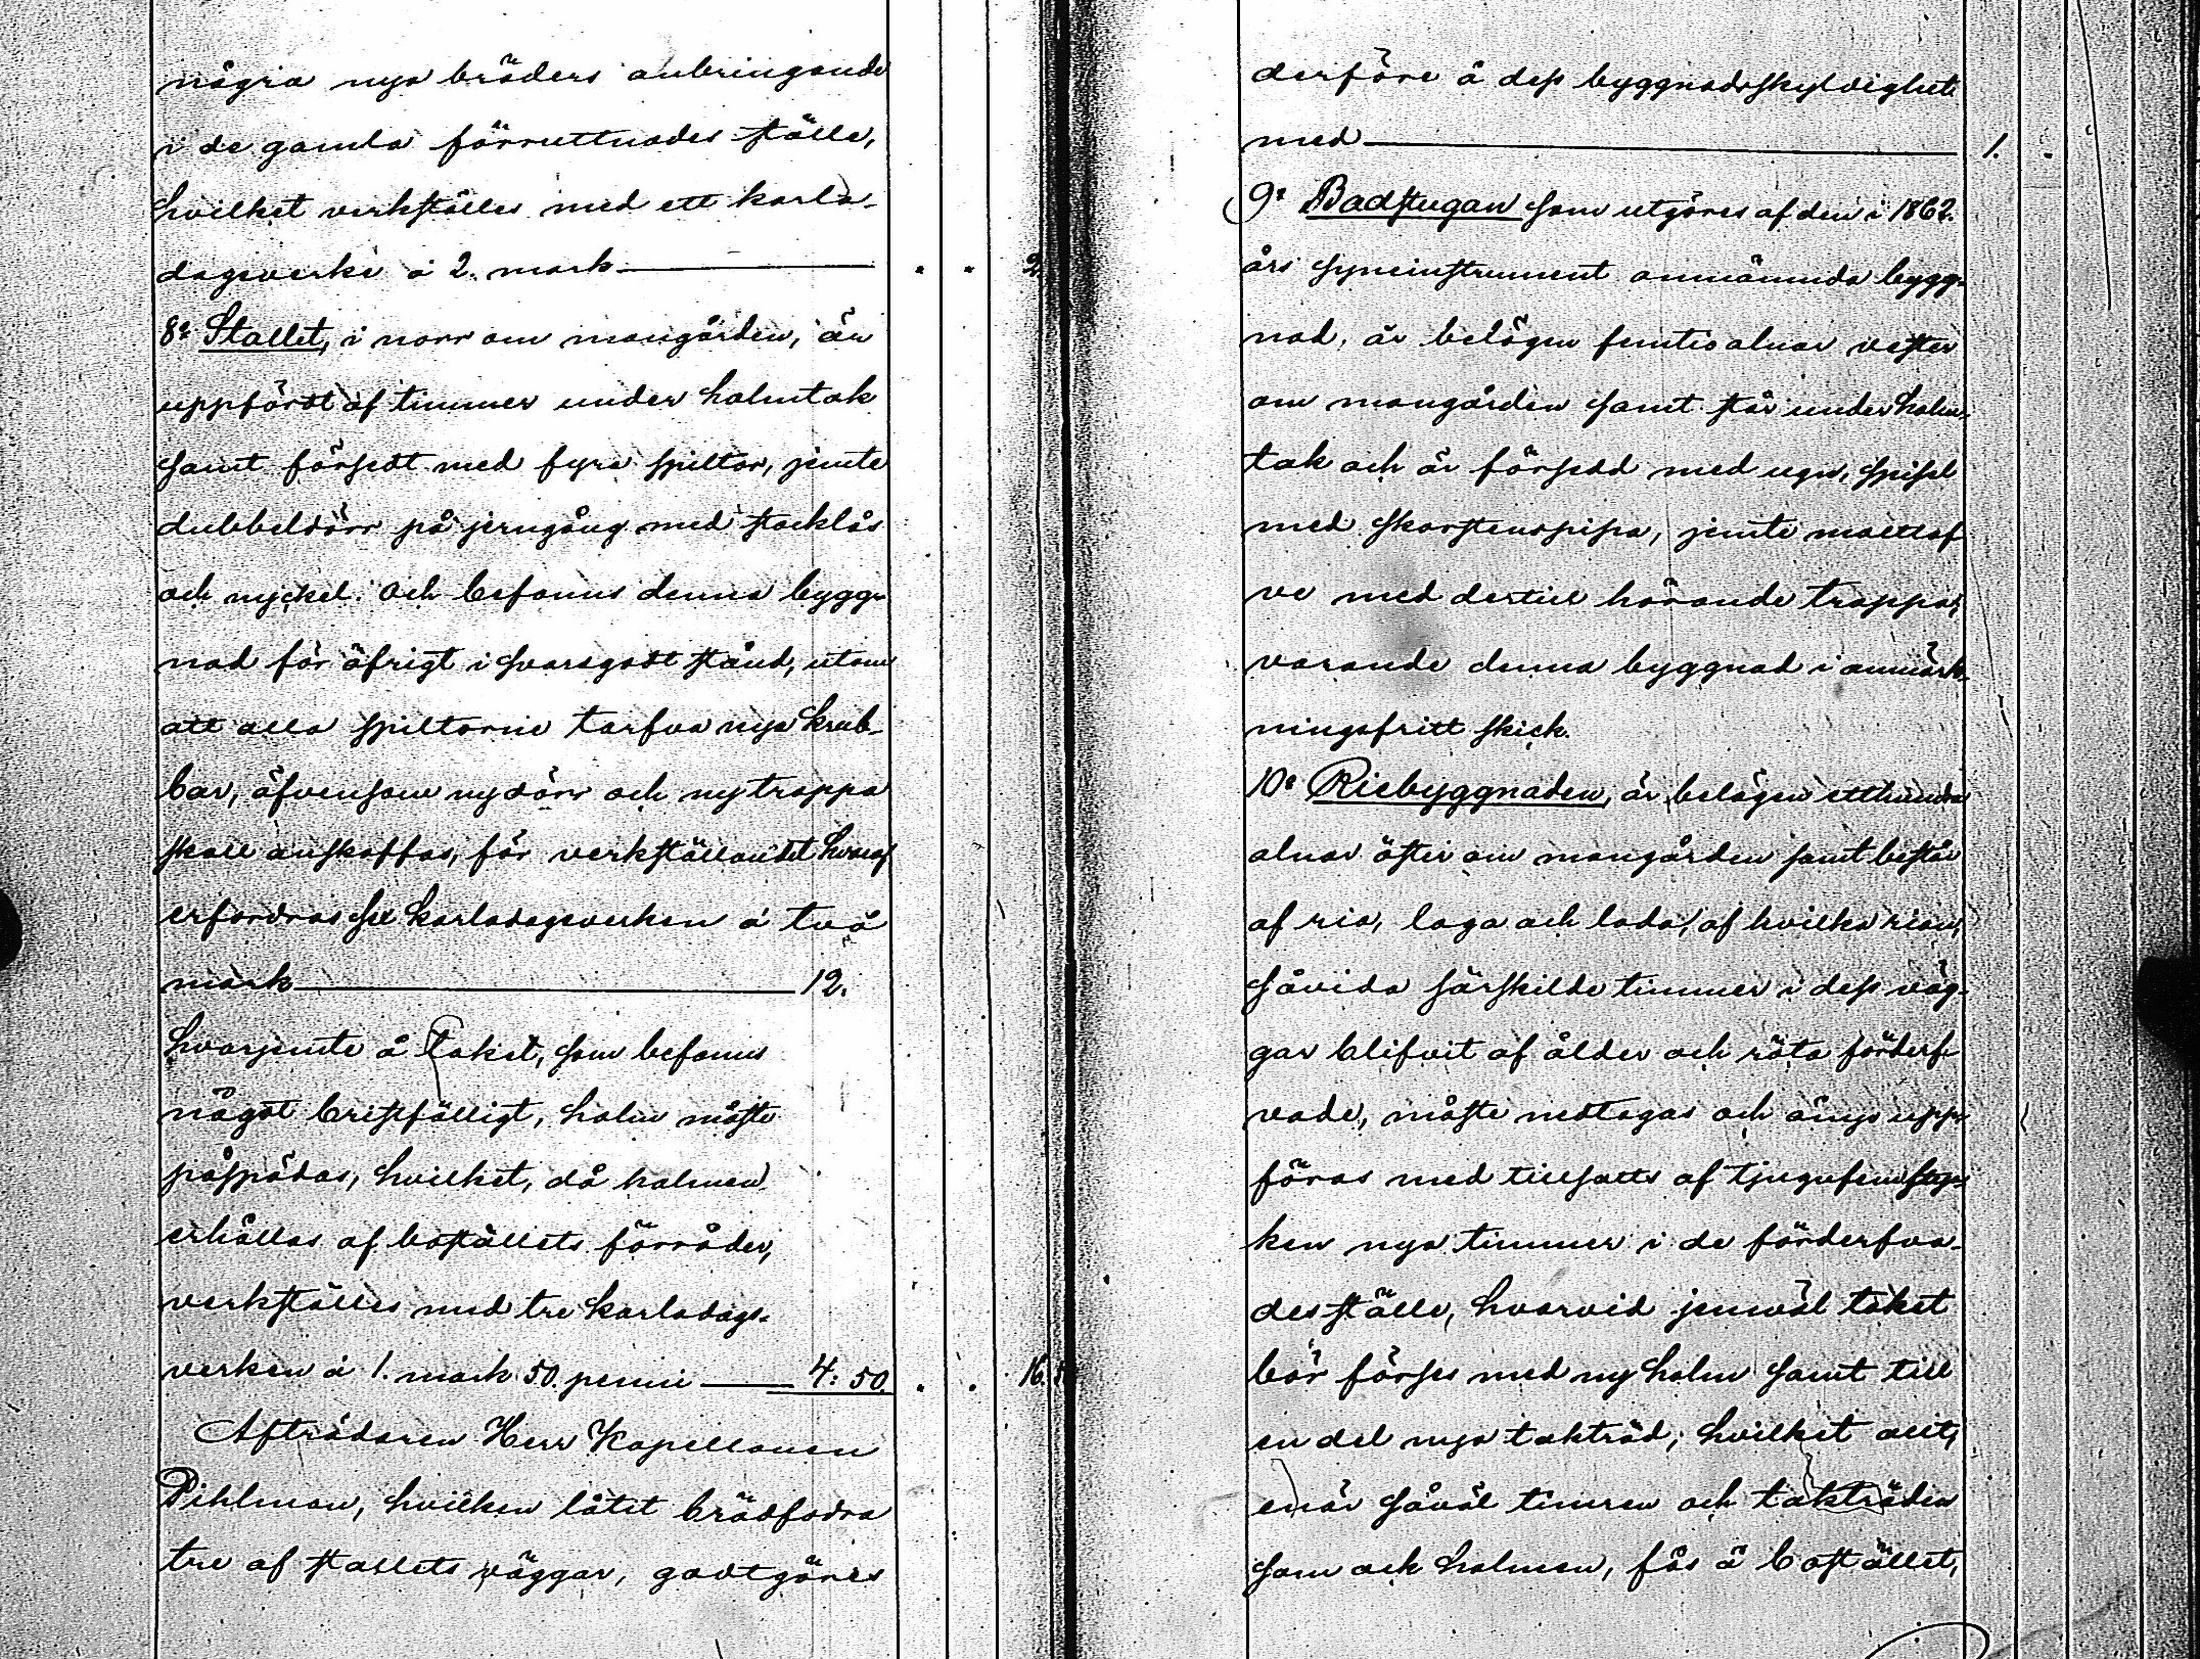 några nya bräders anbringande
i de gamla förruttnades ställe,
hvilket verkställes med ett karla-
dagsverke á 2. mark — . . 2
8:o Stallet, i norr om mangården, är
uppfördt af timmer under halmtak
samt försedt med fyra spiltor, jemte
dubbeldörr på jerngång med stocklås
och nyckel. Och befanns denna bygg-
nad för öfrigt i svarsgodt stånd, utom
att alla spiltorne tarfva nya krub-
bar, äfvensom ny dörr och ny trappa
skall anskaffas, för verkställandet hvaraf
erfordras sex karladagsverken á två
mark — 12.
hvarjemte å taket, som befanns
något bristfälligt, halm måste
påspädas, hvilket, då halmen
erhålles af boställets förråder,
verkställes med tre karladags-
verken á 1. mark 50. penni — 4: 50. . . 16. 5
Afträdaren Herr Kapellanen
Pihlman, hvilken låtit brädfodra
tre af stallets väggar, godtgöres
derföre å dess byggnadsskyldighet
med — 1. .
9:o Badstugan som utgöres af den i 1862.
års syneinstrument omnämnda bygg-
nad, är belägen femtio alnar vester
om mangården samt står under halm-
tak och är försedd med ugn, spisel
med skorstenspipa, jemte maltlaf-
ve med dertill hörande trappa,
varande denna byggnad i anmärk-
ningsfritt skick.
10:o Riebyggnaden, är belägen etthundra
alnar öster om mangården samt består
af ria, loga och lada, af hvilka rian,
såvida särskilde timmer i dess väg-
gar blifvit af ålder och röta förderf-
vade, måste nedtagas och ånyo upp-
föras med tillsatts af tjugufem styc-
ken nya timmer i de förderfva-
des ställe, hvarvid jemväl taket
bör förses med ny halm samt till
en del nya takträd; hvilket allt,
enär såväl timren och takträden
som ock halmen, fås å bostället,